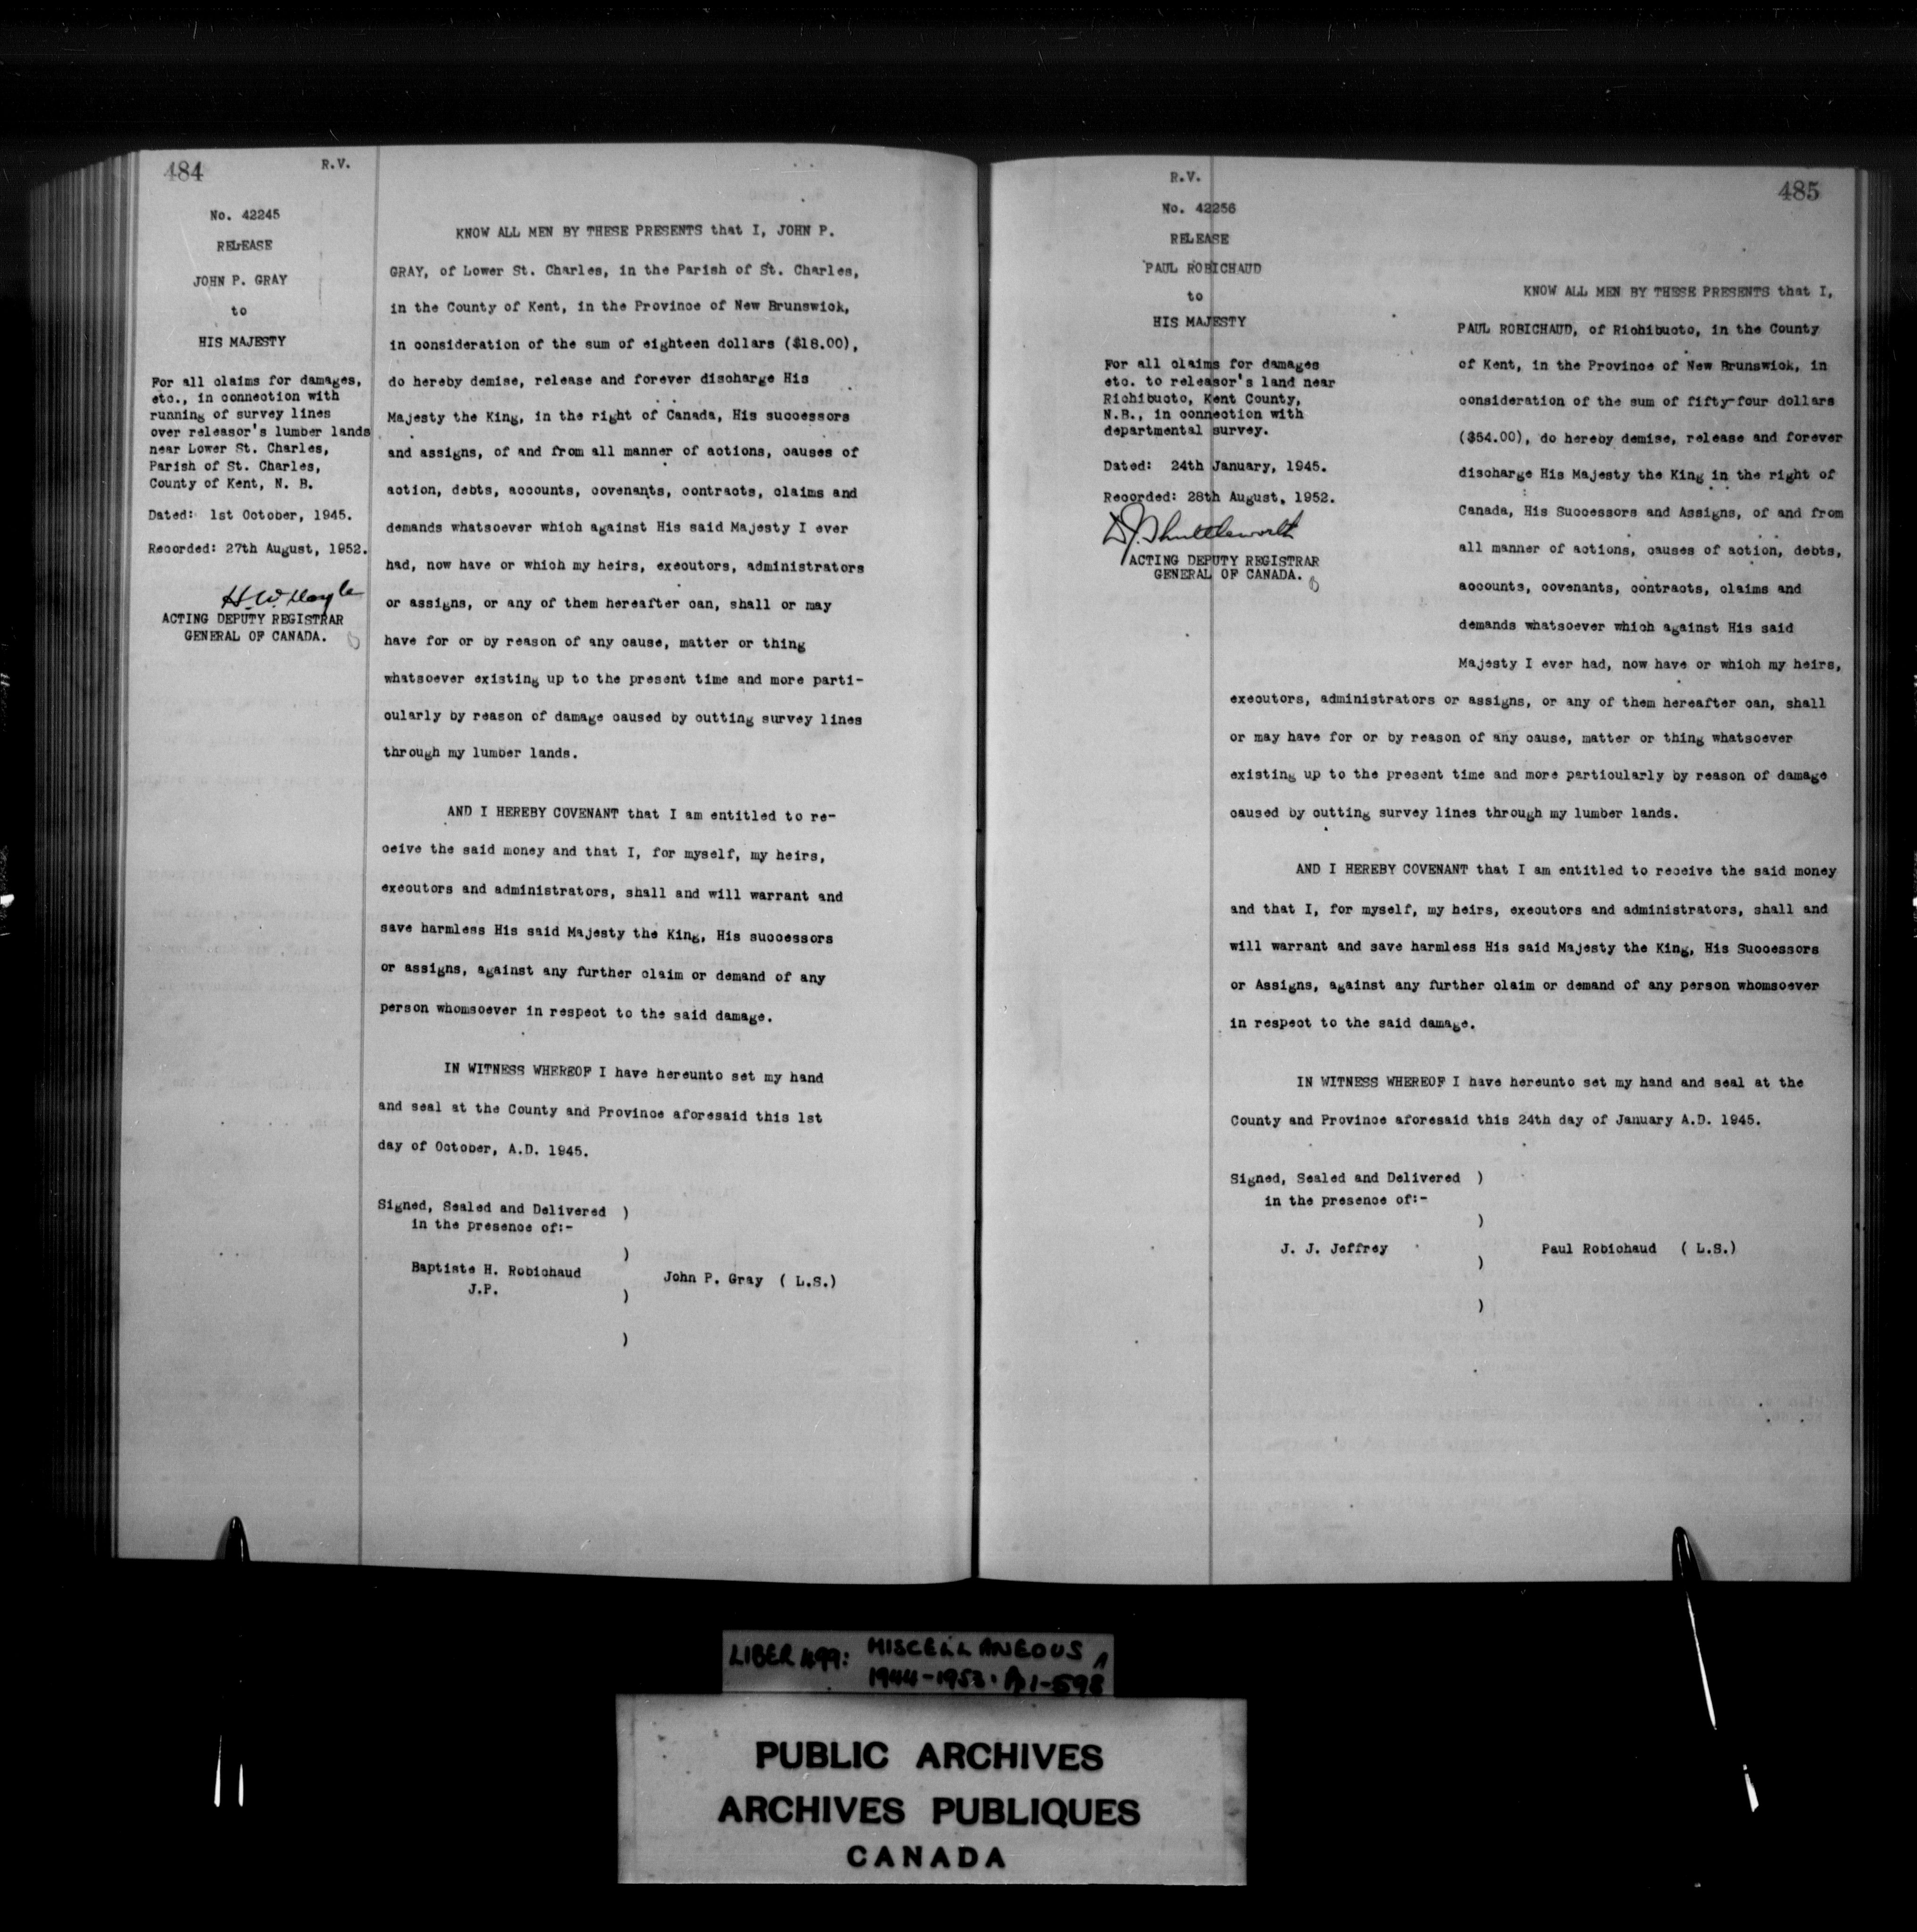 484
R.V.
No. 42245
RELEASE
JOHN P. GRAY
to
HIS MAJESTY
For all claims for damages,
etc., in connection with
running of survey lines
over releasor's lumber lands
near Lower St. Charles,
Parish of St. Charles,
County of Kent, N. B.
Dated: 1st October, 1945.
Recorded: 27th August, 1952.
ACTING DEPUTY REGISTRAR
GENERAL OF CANADA.
KNOW ALL MEN BY THESE PRESENTS that I, JOHN P.
GRAY, of Lower St. Charles, in the Parish of St. Charles,
in the County of Kent, in the Province of New Brunswick,
in consideration of the sum of eighteen dollars ($18.00),
do hereby demise, release and forever discharge His
Majesty the King, in the right of Canada, His successors
and assigns, of and from all manner of actions, causes of
action, debts, accounts, covenants, contracts, claims and
demands whatsoever which against His said Majesty I ever
had, now have or which my heirs, executors, administrators
or assigns, or any of them hereafter can, shall or may
have for or by reason of any cause, matter or thing
whatsoever existing up to the present time and more parti-
cularly by reason of damage caused by cutting survey lines
through my lumber lands.
AND I HEREBY COVENANT that I am entitled to re-
ceive the said money and that I, for myself, my heirs,
executors and administrators, shall and will warrant and
save harmless His said Majesty the King, His successors
or assigns, against any further claim or demand of any
person whomsoever in respect to the said damage.
IN WITNESS WHEREOF I have hereunto set my hand
and seal at the County and Province aforesaid this 1st
day of October, A.D. 1945.
Signed, Sealed and Delivered )
in the presence of:-
)
Baptiste H. Robichaud
J.P.
John P. Gray ( L.S.)
)
)
R.V.
485
No. 42256
RELEASE
PAUL ROBICHAUD
to
HIS MAJESTY
For all claims for damages
etc. to releasor's land near
Richibucto, Kent County,
N.B., in connection with
departmental survey.
Dated: 24th January, 1945.
Recorded: 28th August, 1952.
D.J. Shuttleworth
ACTING DEPUTY REGISTRAR
GENERAL OF CANADA.
KNOW ALL MEN BY THESE PRESENTS that I,
PAUL ROBICHAUD, of Richibucto, in the County
of Kent, in the Province of New Brunswick, in
consideration of the sum of fifty-four dollars
($54.00), do hereby demise, release and forever
discharge His Majesty the King in the right of
Canada, His Successors and Assigns, of and from
all manner of actions, causes of action, debts,
accounts, covenants, contracts, claims and
demands whatsoever which against His said
Majesty I ever had, now have or which my heirs,
executors, administrators or assigns, or any of them hereafter can, shall
or may have for or by reason of any cause, matter or thing whatsoever
existing up to the present time and more particularly by reason of damage
caused by cutting survey lines through my lumber lands.
AND I HEREBY COVENANT that I am entitled to receive the said money
and that I, for myself, my heirs, executors and administrators, shall and
will warrant and save harmless His said Majesty the King, His Successors
or Assigns, against any further claim or demand of any person whomsoever
in respect to the said damage.
IN WITNESS WHEREOF I have hereunto set my hand and seal at the
County and Province aforesaid this 24th day of January A.D. 1945.
Signed, Sealed and Delivered )
in the presence of:-
)
J. J. Jeffrey
Paul Robichaud ( L.S.)
)
)
LIBER 499: MISCELLANEOUS
1944-1953. 1-598
PUBLIC ARCHIVES
ARCHIVES PUBLIQUES
CANADA